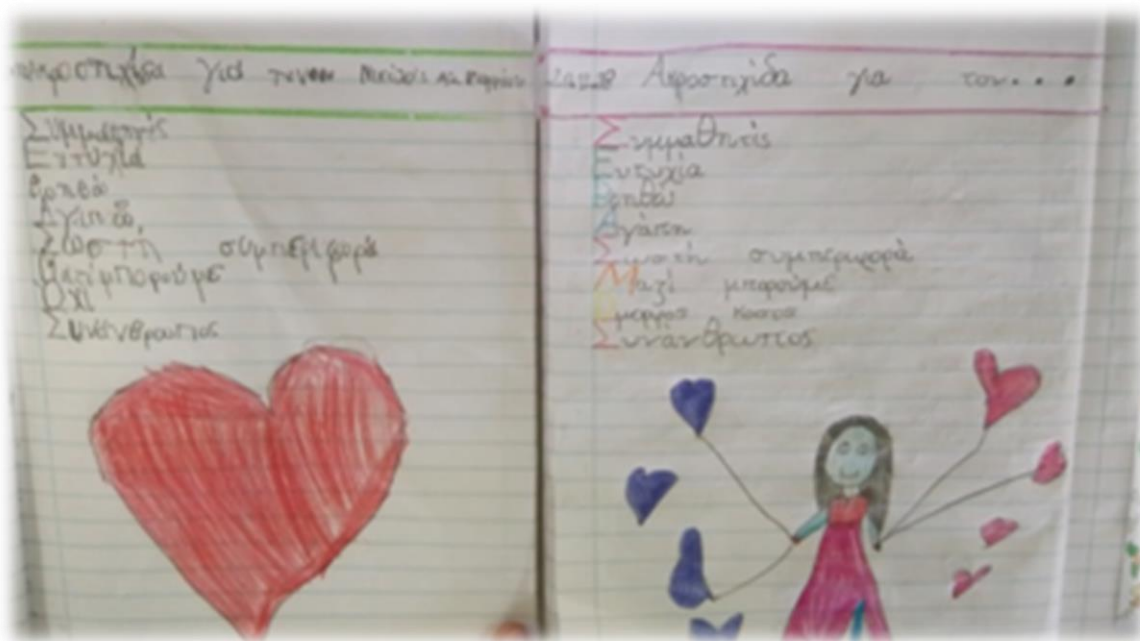 για
Συμμαθητής
Ευτυχία
Βοηθώ
Αγαπώ,
Σωστή συμπεριφορά
Μαζί μπορούμε
Όχι
Συνάνθρωπος
Ακροστιχίδα για τον...
Συμμαθητής
Ευτυχία
Βοηθώ
Αγάπη
Σωστή συμπεριφορά
Μαζί μπορούμε
Συνάνθρωπος